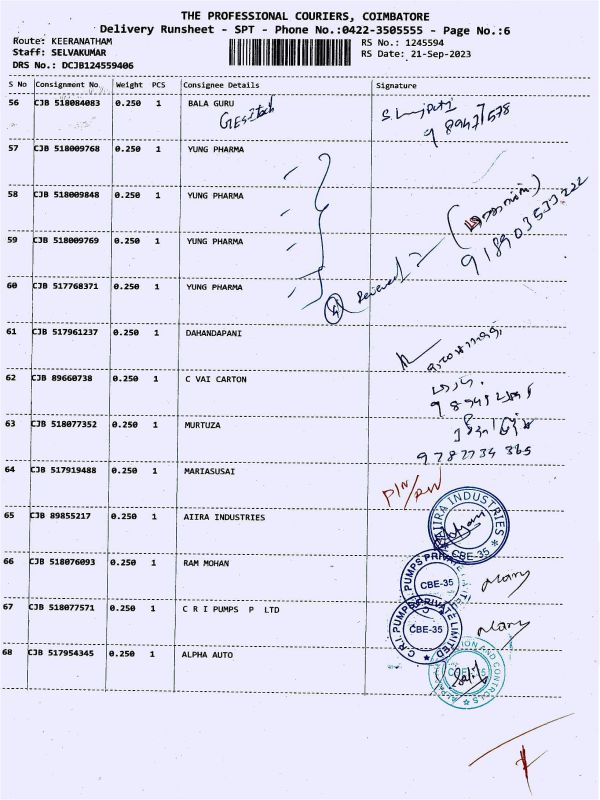 THE PROFESSIONAL COURIERS, COIMBATORE
Delivery Runsheet - SPT - Phone No.:0422-3505555 - Page No.:6
Route: KEERANATHAM
Staff: SELVAKUMAR
DRS No.: DCJB124559406
RS No.: 1245594
RS Date: 21-Sep-2023
S No Consignment No. Weight PCS Consignee Details Signature
56 CJB 518084083 0.250 1 BALA GURU
57 CJB 518009768 0.250 1 YUNG PHARMA
58 CJB 518009848 0.250 1 YUNG PHARMA
59 CJB 518009769 0.250 1 YUNG PHARMA
60 CJB 517768371 0.250 1 YUNG PHARMA
4 Received
61 CJB 517961237 0.250 1 DAHANDAPANI
62 CJB 89660738 0.250 1 C VAI CARTON
63 CJB 518077352 0.250 1 MURTUZA
64 CJB 517919488 0.250 1 MARIASUSAI
65 CJB 89855217 0.250 1 AIIRA INDUSTRIES
AIIRA INDUSTRIES
CBE-35
66 CJB 518076093 0.250 1 RAM MOHAN
PUMPS PRIVATE
CBE-35
67 CJB 518077571 0.250 1 C R I PUMPS P LTD
C.R.I. PUMPS PRIVATE LIMITED
CBE-35
68 CJB 517954345 0.250 1 ALPHA AUTO
AND CONTROLS